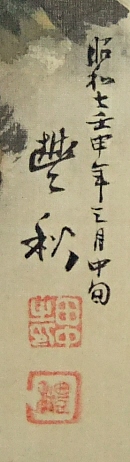 昭和七壬申年三月中旬
豊秋